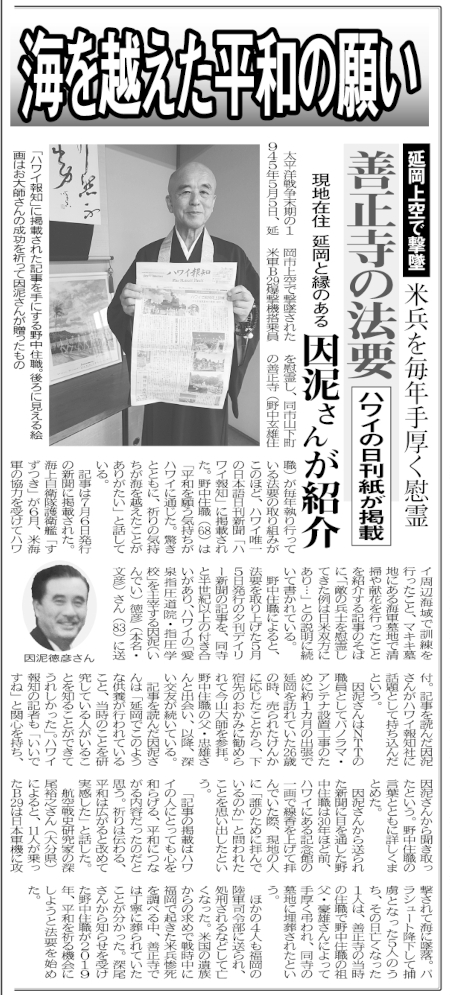 海を越えた平和の願い
延岡上空で撃墜
米兵を毎年手厚く慰霊
善正寺の法要
ハワイの日刊紙が掲載
現地在住 延岡と縁のある
因泥さんが紹介
「ハワイ報知」に掲載された記事を手にする野中住職。後ろに見える絵
画はお大師さんの成功を祈って因泥さんが贈ったもの
太平洋戦争末期の1
945年5月5日、延
岡市上空で撃墜された
米軍B29爆撃機搭乗員
を慰霊し、同市山下町
の善正寺（野中玄雄住
職）が毎年執り行って
いる法要の取り組みが
このほど、ハワイ唯一
の日本語日刊新聞「ハ
ワイ報知」に掲載され
た。野中住職（68）は
「平和を願う気持ちが
ハワイに通じた。驚き
とともに、祈りの気持
ちが海を越えたことが
ありがたい」と話して
いる。
記事は7月6日発行
の新聞に掲載された。
海上自衛隊護衛艦「す
ずつき」が6月、米海
軍の協力を受けてハワ
イ周辺海域で訓練を
行ったこと、マキキ墓
地にある海軍墓地で清
掃や献花を行ったこと
を紹介する記事のそば
に、「敵の兵士を慰霊し
てきた例は日米双方に
あり…」との説明に続
いて書かれている。
野中住職によると、
法要を取り上げた5月
5日発行の夕刊デイリ
ー新聞の記事を、同寺
と半世紀以上の付き合
いがあり、ハワイの「愛
泉指圧道院・指圧学
校」を主宰する因泥（い
んでい）徳彦（本名・
文彦）さん（83）に送
因泥徳彦さん
付。記事を読んだ因泥
さんがハワイ報知社に
話題として持ち込んだ
という。
因泥さんはNTTの
職員としてパノラマ・
アンテナ設置工事のた
めに約1カ月の出張で
延岡を訪れていた20歳
の時、売られたけんか
に応じたことから、下
宿先のおかみに勧めら
れて今山大師を参拝。
野中住職の父・忠雄さ
んと出会い、以降、深
い交友が続いている。
記事を読んだ因泥さ
んは「延岡でこのよう
な供養が行われている
こと、当時のことを研
究している人がいるこ
とを知ることができて
うれしかった。ハワイ
報知の記者も『いいで
すね』と関心を持ち、
因泥さんから聞き取っ
たという。野中住職の
言葉とともに詳しくま
とめた。
因泥さんから送られ
た新聞に目を通した野
中住職は30年ほど前、
ハワイにある記念館の
一画で線香を上げて拝
んでいた際、現地の人
に「誰のために拝んで
いるのか」と問われた
ことを思い出したとい
う。
「記事の掲載はハワ
イの人にとっても心を
和らげる、平和につな
がる内容だったのだと
思う。祈りは伝わる、
平和は広がると改めて
実感した」と話した。
航空戦史研究家の深
尾裕之さん（大分県）
によると、11人が乗っ
たB29は日本軍機に攻
撃されて海に墜落。パ
ラシュート降下して捕
虜となった5人のう
ち、その日亡くなった
1人は、善正寺の当時
の住職で野中住職の祖
父・豪雄さんによって
手厚く弔われ、同寺の
墓地に埋葬されたとい
う。
ほかの4人も福岡の
陸軍司令部に送られ、
処刑されるなどして亡
くなった。米国の遺族
からの求めで戦時中に
福岡で起きた米兵惨死
を調べる中、善正寺で
は丁寧に葬られていた
ことが分かった。深尾
さんから知らせを受け
た野中住職が2019
年、平和を祈る機会に
しようと法要を始め
た。